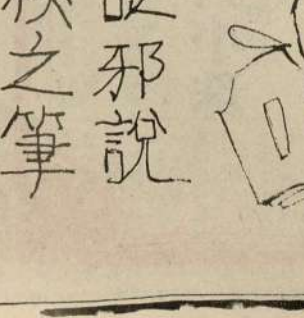 邪說
之筆